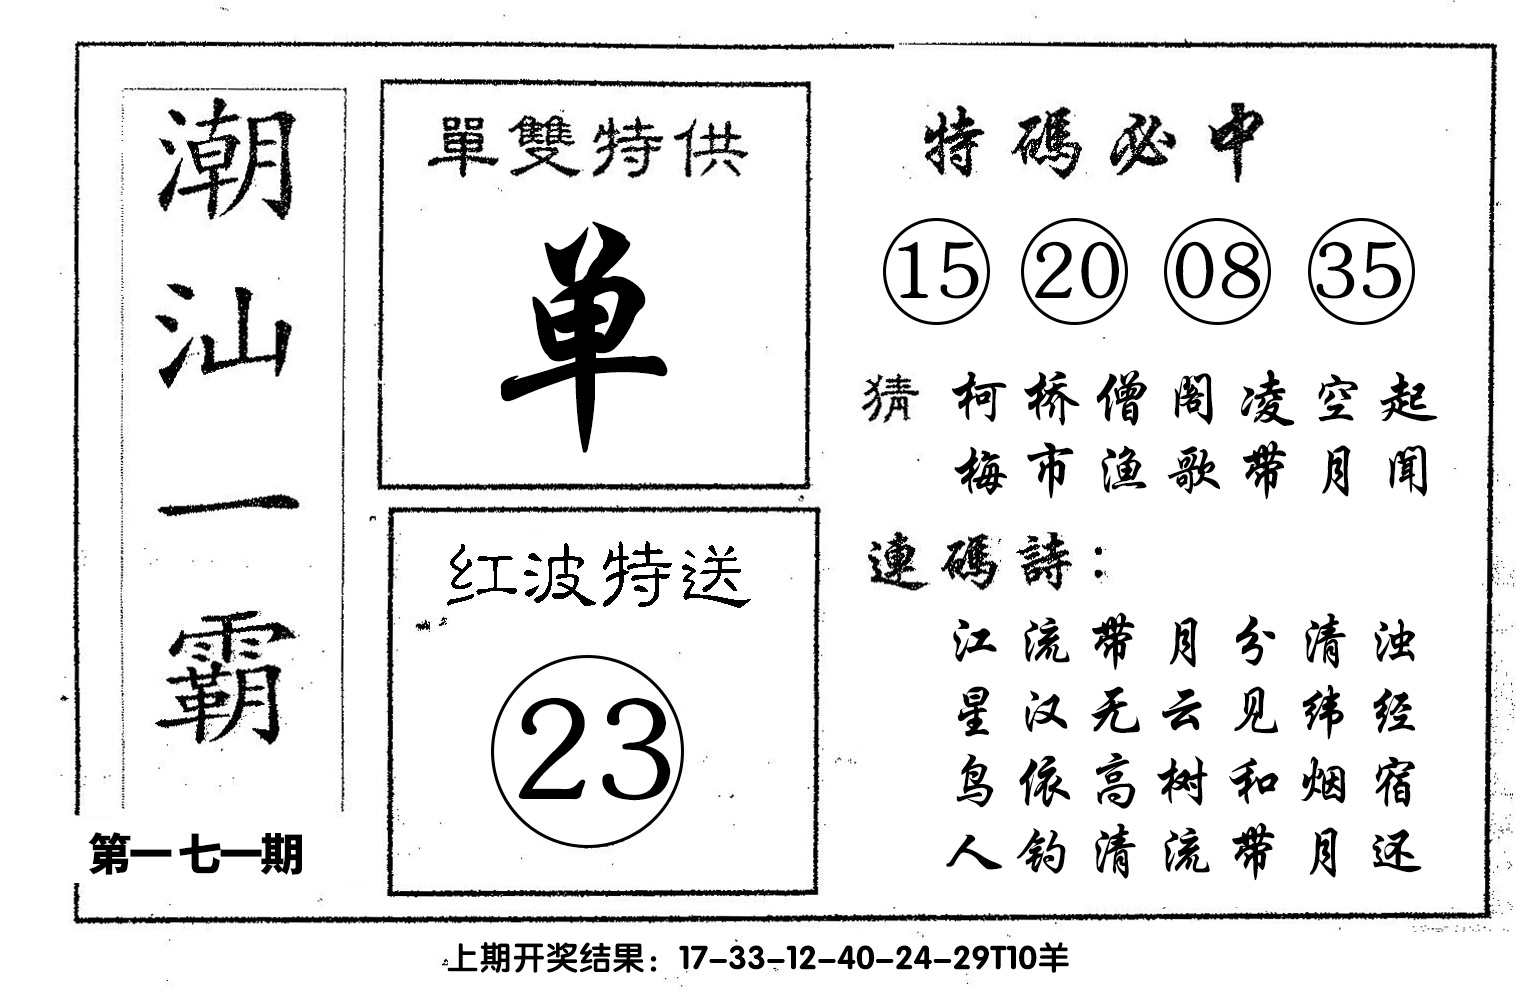 潮汕一霸
第一七一期
單雙特供
单
红波特送
23
特碼必中
15 20 08 35
猜 柯桥僧阁凌空起
梅市渔歌带月闻
連碼詩：
江流带月分清浊
星汉无云见纬经
鸟依高树和烟宿
人钓清流带月还
上期开奖结果：17-33-12-40-24-29T10羊